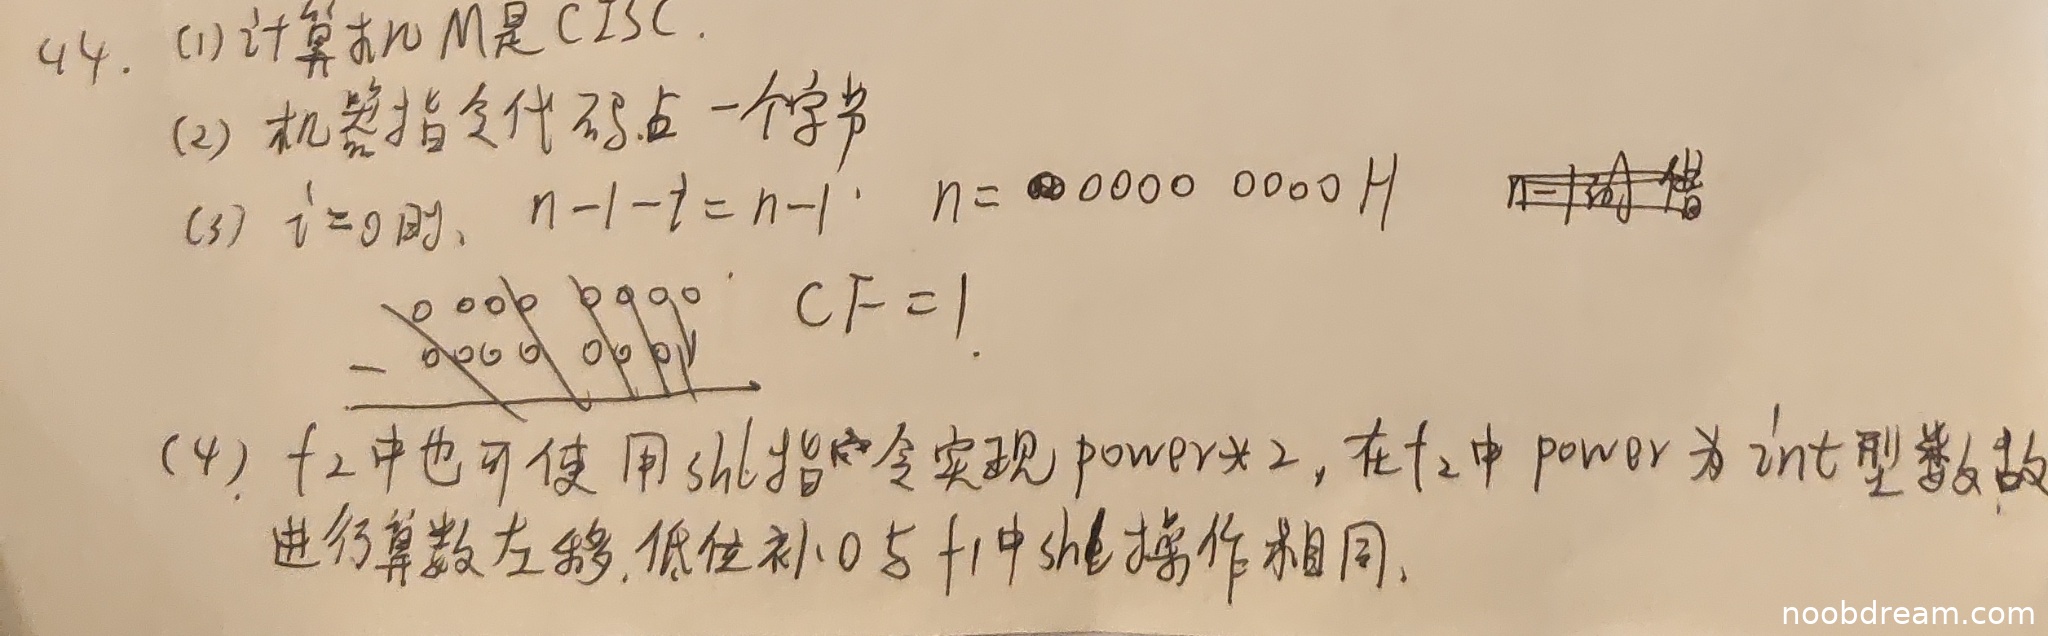 44. (1) 计算机M是CISC.
(2) 机器指令代码占一个字节
(3) i=0时、 n-1-i=n-1. n= 0000 0000H
0 000 0000
CF=1.
- 0000 00
(4). f2中也可使用shl指令实现power*2,在f2中power为int型数故
进行算数左移.低位补0与f1中shl操作相同.
noobdream.com